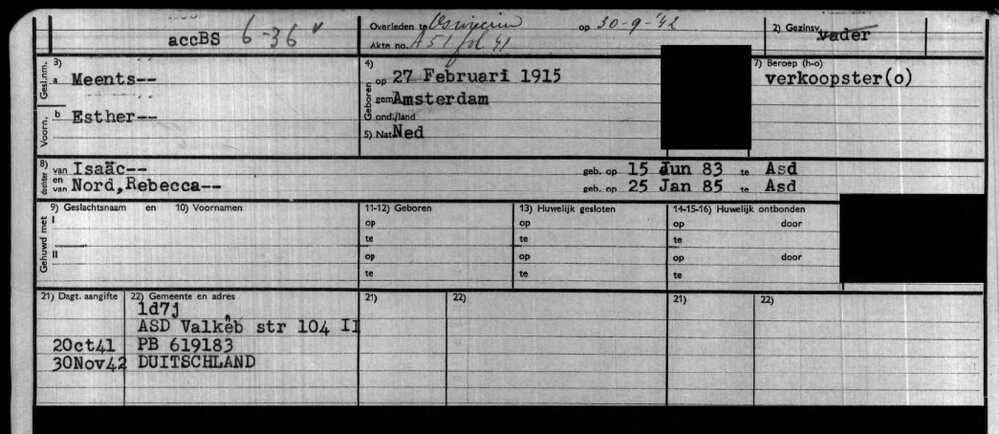 accBS 6-36 v
Overleden te Oswiecim op 30-9-'42
Akte no. A51 fol 41
2) Gezinsv. vader
Gesl.nm. 3) a Meents--
Voorn. b Esther--
4) Geboren op 27 Februari 1915
gem Amsterdam
ond./land
5) Nat Ned
7) Beroep (h-o)
verkoopster(o)
8) dochter van Isaäc-- geb. op 15 Jun 83 te Asd
en van Nord,Rebecca-- geb. op 25 Jan 85 te Asd
Gehuwd met 9) Geslachtsnaam en 10) Voornamen 11-12) Geboren 13) Huwelijk gesloten 14-15-16) Huwelijk ontbonden
I op op op door
te te te
II op op op door
te te te
21) Dagt. aangifte 22) Gemeente en adres 21) 22) 21) 22)
1d7j
ASD Valkeb str 104 II
20ct41 PB 619183
30Nov42 DUITSCHLAND